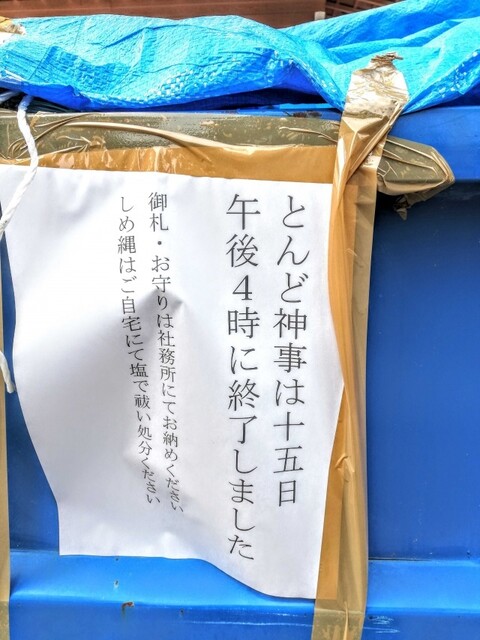 とんど神事は十五日
午後4時に終了しました
御札・お守りは社務所にてお納めください
しめ縄はご自宅にて塩で祓い処分ください